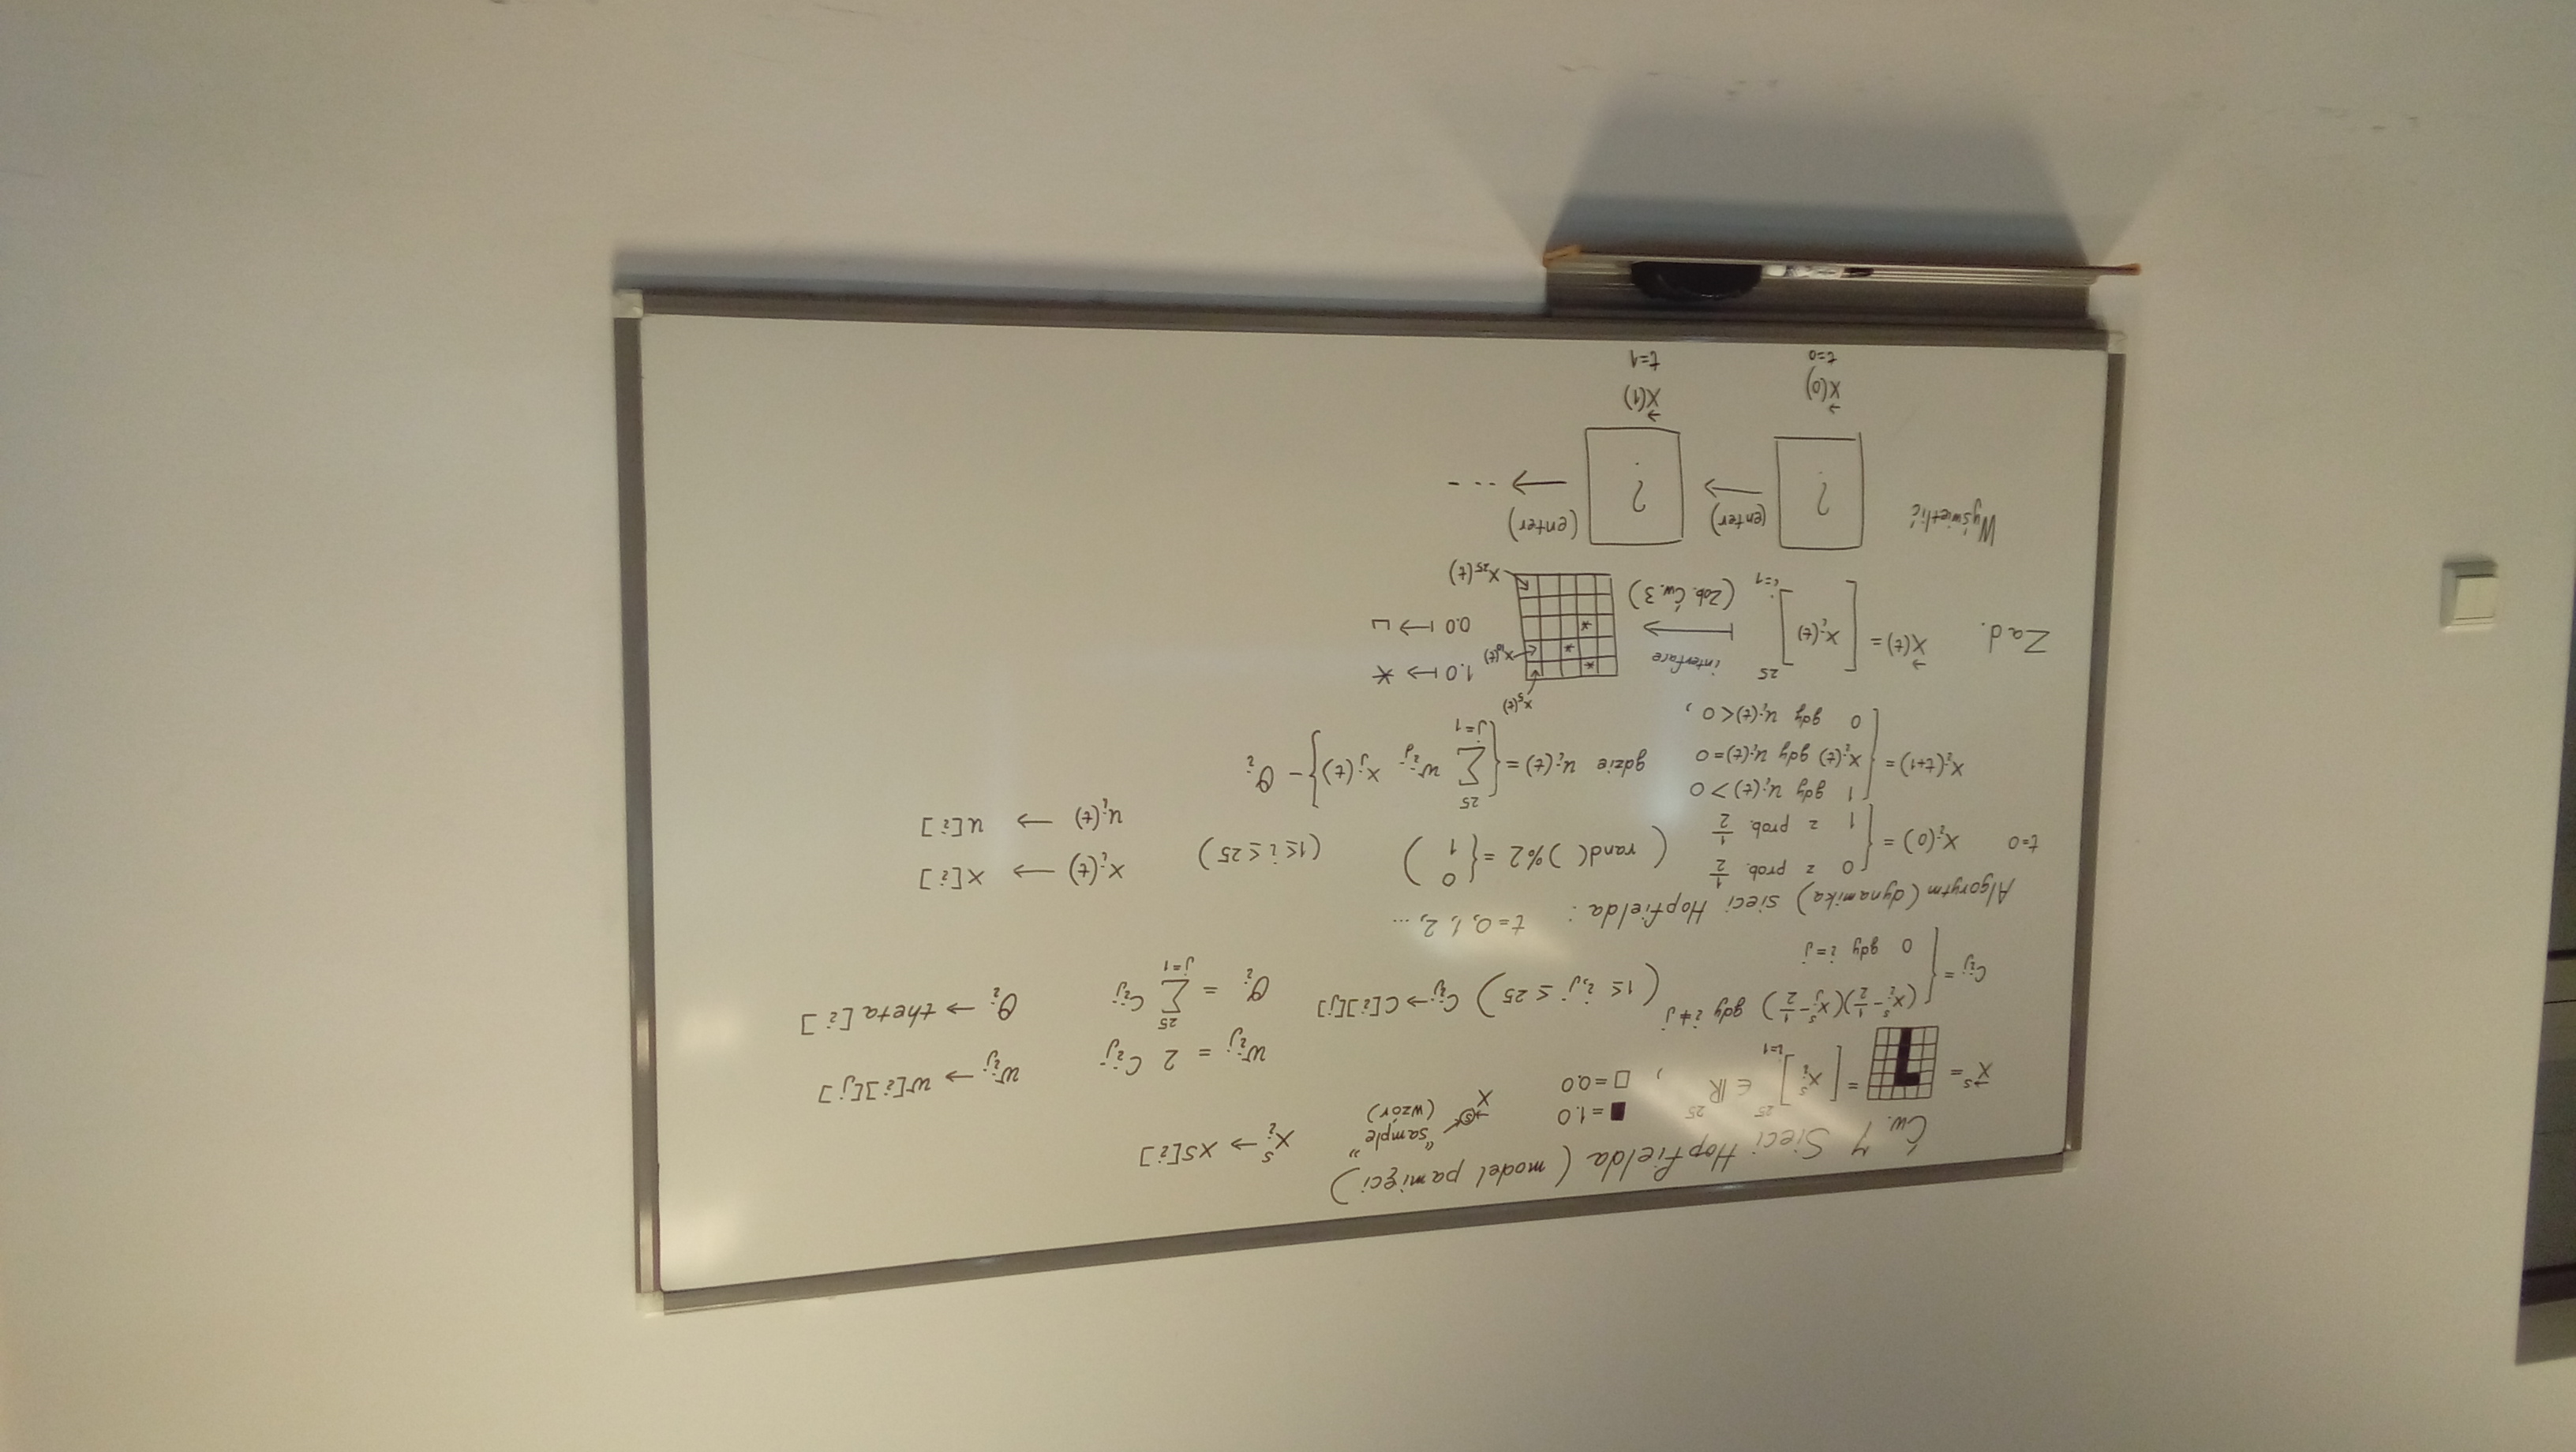 Ćw. 7 Sieci Hopfielda (model pamięci)
x⃗ˢ = = [xᵢˢ]²⁵ᵢ₌₁ ∈ ℝ²⁵ , ■ = 1.0
□ = 0.0
x⃗ˢ ← "sample"
(wzór)
xᵢˢ → xs[i]
cᵢⱼ = { (xᵢˢ - 1/2)(xⱼˢ - 1/2) gdy i ≠ j
0 gdy i = j
(1 ≤ i,j ≤ 25) cᵢⱼ → c[i][j]
wᵢⱼ = 2 cᵢⱼ
wᵢⱼ → w[i][j]
θᵢ = ∑²⁵ⱼ₌₁ cᵢⱼ
θᵢ → theta[i]
Algorytm (dynamika) sieci Hopfielda: t = 0, 1, 2, ...
t=0 xᵢ(0) = { 0 z prob. 1/2
1 z prob. 1/2
(rand( )%2 = { 0
1 )
(1 ≤ i ≤ 25)
xᵢ(t) → x[i]
uᵢ(t) → u[i]
xᵢ(t+1) = { 1 gdy uᵢ(t) > 0
xᵢ(t) gdy uᵢ(t) = 0
0 gdy uᵢ(t) < 0 ,
gdzie uᵢ(t) = { ∑²⁵ⱼ₌₁ wᵢⱼ xⱼ(t) } - θᵢ
Zad. x⃗(t) = [xᵢ(t)]²⁵ᵢ₌₁ interface ↦
(Zob. Ćw. 3)
x₅(t)
* x₁₀(t)
*
*
x₂₅(t)
1.0 ↦ *
0.0 ↦ ␣
Wyświetlić ? (enter) → ? (enter) → ...
x⃗(0) x⃗(1)
t=0 t=1